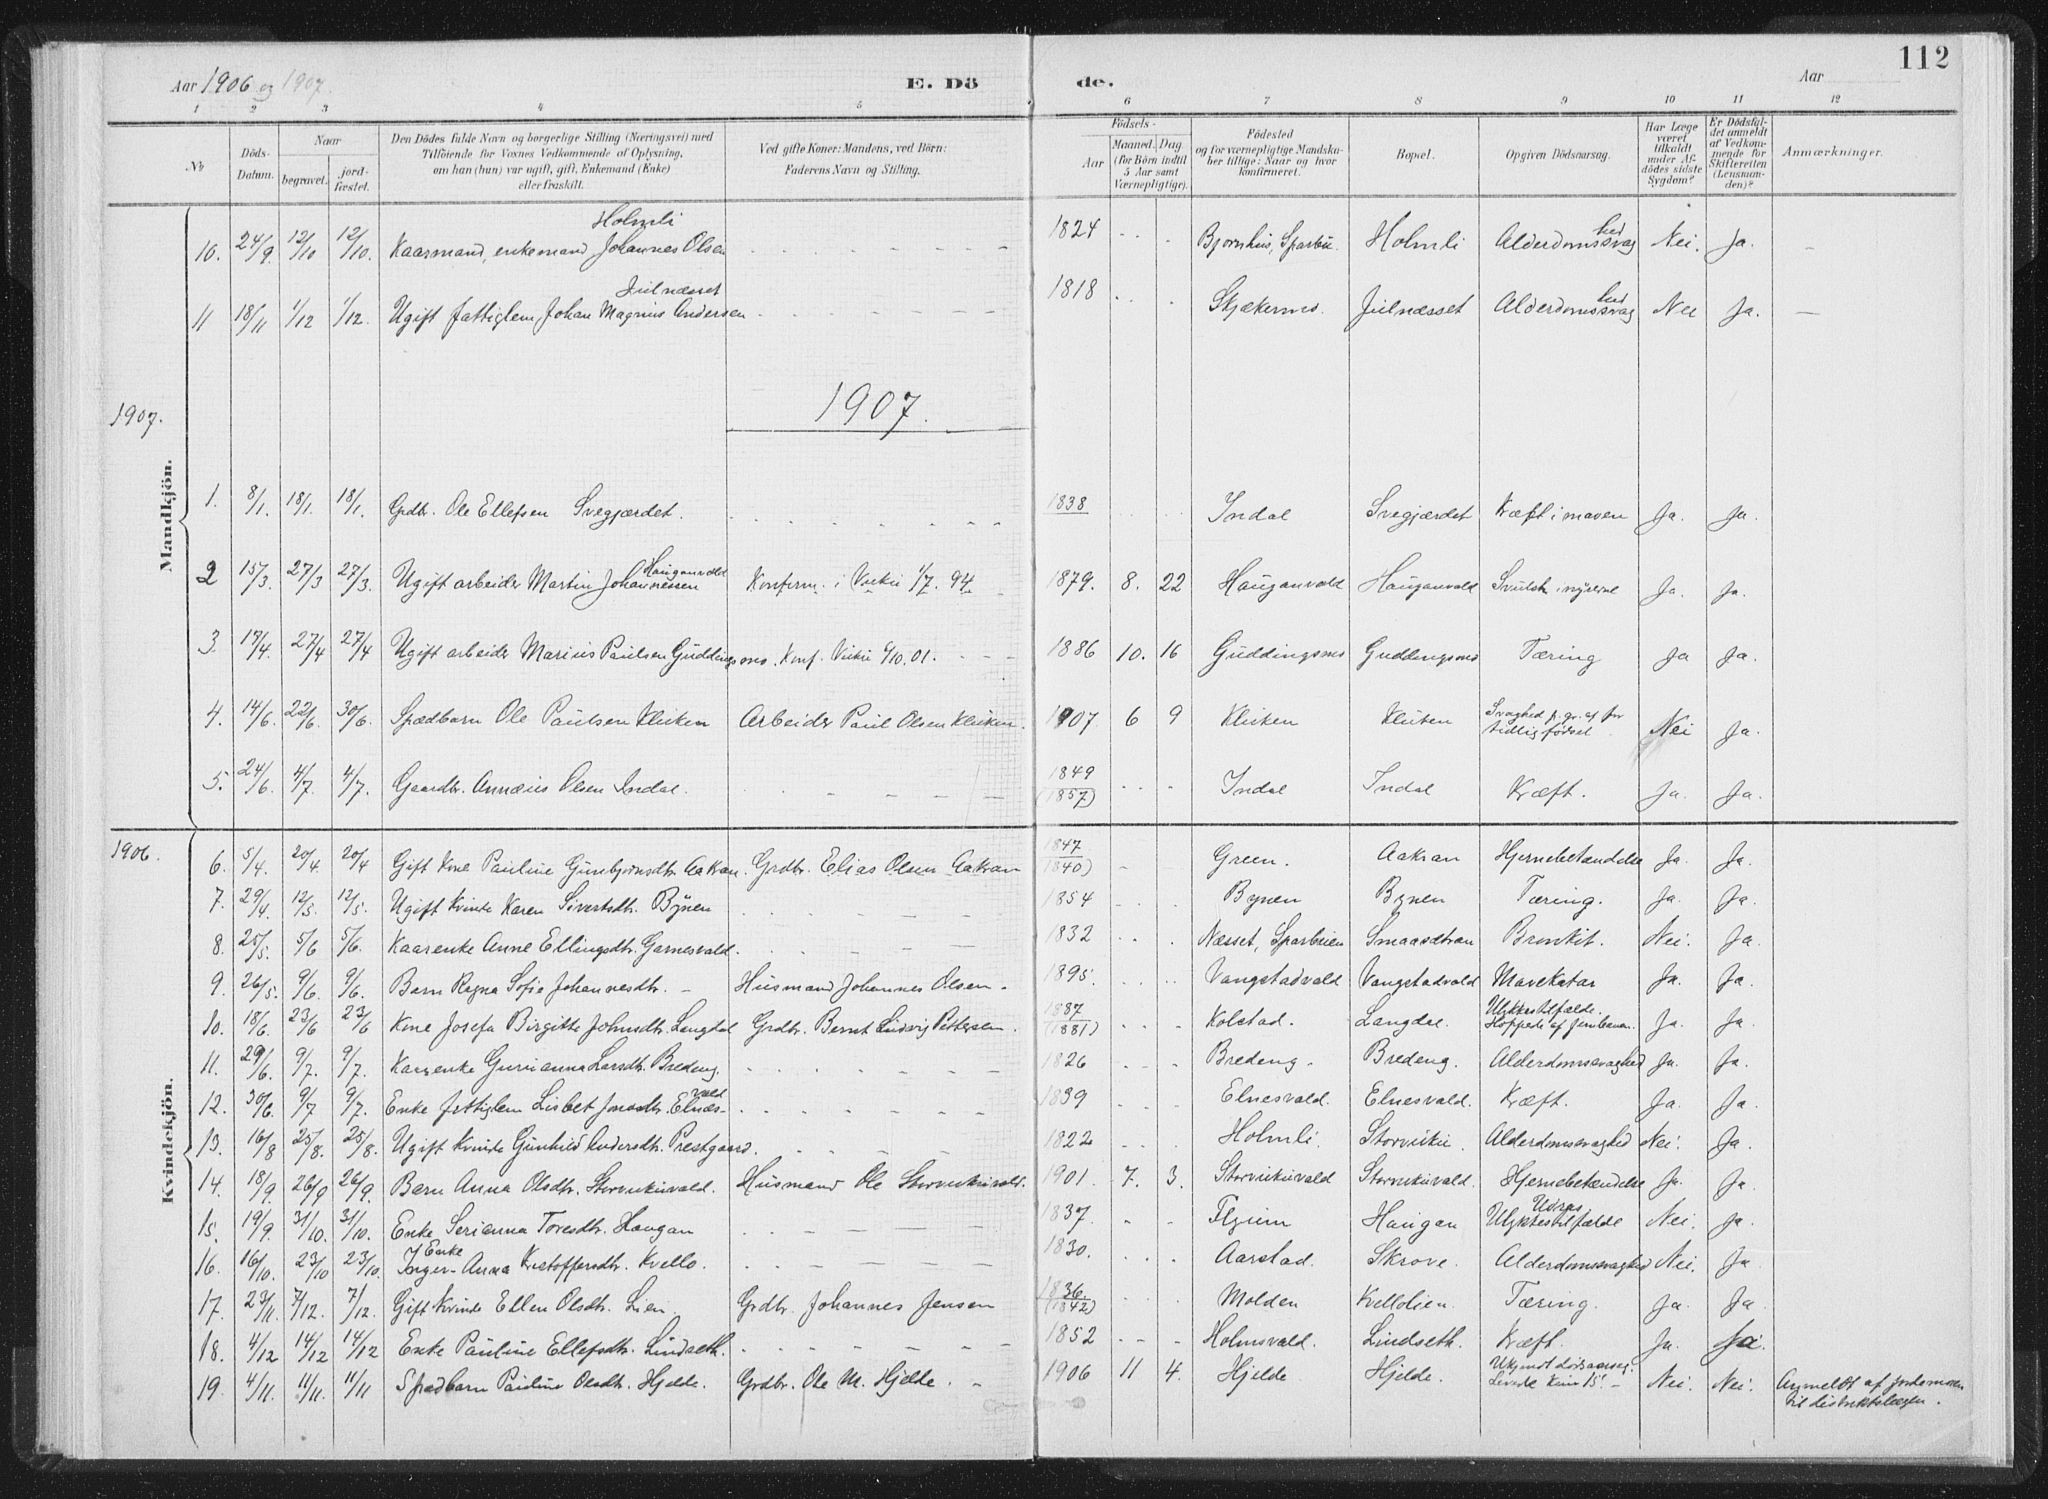 112
Aar 1906 og 1907.
E. Dö de.
Aar
1 2 3 4 5 6 7 8 9 10 11 12
No
Döds-Datum.
Naar begravet. jordfæstet.
Den Dödes fulde Navn og borgerlige Stilling (Næringsvei) med Tilföiende for Voxnes Vedkommende af Oplysning, om han (hun) var ugift, gift, Enkemand (Enke) eller fraskilt.
Ved gifte Koner: Mandens, ved Börn: Faderens Navn og Stilling.
Födsels- Aar Maaned. Dag (for Börn indtil 5 Aar samt Værnepligtige).
Födested og for værnepligtige Mandskaber tillige: Naar og hvor konfirmeret.
Bopæl.
Opgiven Dödsaarsag.
Har Læge været tilkaldt under Afdödes sidste Sygdom?
Er Dödsfaldet anmeldt af Vedkommende for Skifteretten (Lensmanden)?
Anmærkninger.
10. 24/9 12/10 12/10. Kaarmand, enkemand Johannes Olsen Holmli 1824 Bjørnhus, Sparbu. Holmli Alderdomssvaghed Nei. Ja. –
11 18/11 1/12 1/12. Ugift fattiglem, Johan Magnus Andersen Julnæsset 1818 Skjækermo. Julnæsset Alderdomssvaghed Nei Ja. –
1907.
1907.
Mandkjön.
1. 8/1. 18/1. 18/1. Grdbr. Ole Ellefsen Svegjærdet. 1838 Indal Svegjærdet Kræft i maven Ja. Ja.
2 15/3. 27/3 27/3. Ugift arbeider Martin Johannessen Hauganvald Konfirm. i Vuku 1/7. 94 1879. 8. 22 Hauganvald Hauganvald Svulst i nyrerne Ja. Ja.
3. 17/4. 27/4 27/4 Ugift arbeider Marius Paulsen Guddingsmo. Konf. Vuku 6/10.01. 1886 10. 16 Guddingsmo Guddingsmo Tæring Ja Ja.
4. 14/6. 22/6. 30/6. Spædbarn Ole Paulsen Kluken Arbeider Paul Olsen Kluken. 1907 6 9 Kluken Kluken Svaghed p. gr. af for tidlig fødsel Nei Ja.
5. 24/6 4/7. 4/7. Gaardbr. Annæus Olsen Indal. 1849 (1857) Indal Indal Kræft. Ja. Ja.
1906.
Kvindekjön.
6. 5/4. 20/4 20/4 Gift Kone Pauline Gunbjørnsdtr. Aakran. Grdbr. Elias Olsen Aakran 1847 (1840) Green. Aakran Hjernebetændelse Ja. Ja.
7. 29/4. 12/5. 12/5. Ugift Kvinde Karen Sivertsdtr. Bynen 1854 Bynen Bynen Tæring. Ja. Ja.
8. 25/5. 5/6 5/6. Kaarenke Anne Ellingsdtr. Garnesvald. 1832 Næsset, Sparbuen Smaaaakran Bronkit. Nei. Ja.
9. 26/5. 9/6. 9/6. Barn Ragna Sofie Johannesdtr. – Husmand Johannes Olsen. 1895. Vangstadvald Vangstadvald Mavekatar Ja. Ja.
10. 18/6. 23/6 23/6 Kone Josefa Birgitte Johnsdtr. Langdal Grdbr. Bernt Ludvig Pettersen. 1887 (1881) Kolstad. Langdal. Ulykkestilfælde. Hoppede af jernbanen. Ja. Ja.
11. 29/6 9/7. 9/7. Kaarenke Gurianna Larsdtr. Bredeng. 1826 Bredeng. Bredeng. Alderdomssvaghed Ja. Ja.
12. 30/6. 9/7 9/7. Enke fattiglem Lisbet Jonsdtr. Elnesvald 1839 Elnesvald. Elnesvald. Kræft. Ja. Ja.
13. 16/8 25/8. 25/8. Ugift Kvinde Gunhild Andersdtr. Prestgaard. 1822 Holmli. Storvuku. Alderdomssvaghed Nei. Ja.
14. 18/9. 26/9 26/9. Barn Anna Olsdtr. Storvukuvald. Husmand Ole Storvukuvald. 1901. 7. 3. Storvukuvald Storvukuvald. Hjernebetændelse Ja. Ja.
15. 19/9. 31/10. 31/10. Enke Serianna Toresdtr. Haugan 1837. Flyum Haugan Ulykkestilfælde Nei. Ja.
16. 16/10. 23/10 23/10. Enke Inger-Anna Kristoffersdtr. Kvello. 1830. Aarstad. Skrove. Alderdomssvaghed Nei. Ja
17. 23/11. 7/12. 7/12. Gift Kvinde Ellen Olsdtr. Lien. Grdbr. Johannes Jensen 1836. (1842) Molden Kvellolien. Tæring. Ja. Ja.
18. 4/12 14/12 14/12 Enke Pauline Ellefsdtr. Lindseth. 1852 Holmsvald. Lindseth. Kræft. Ja. Ja.
19. 4/11. 11/11. 11/11 Spædbarn Pauline Olsdtr. Hjelde. Grdbr. Ole M. Hjelde. 1906 11 4. Hjelde Hjelde. Ukjendt dødsaarsag. Levede kun 15'. – Nei. Nei. Anmeldt af jordemoren til distriktslægen.